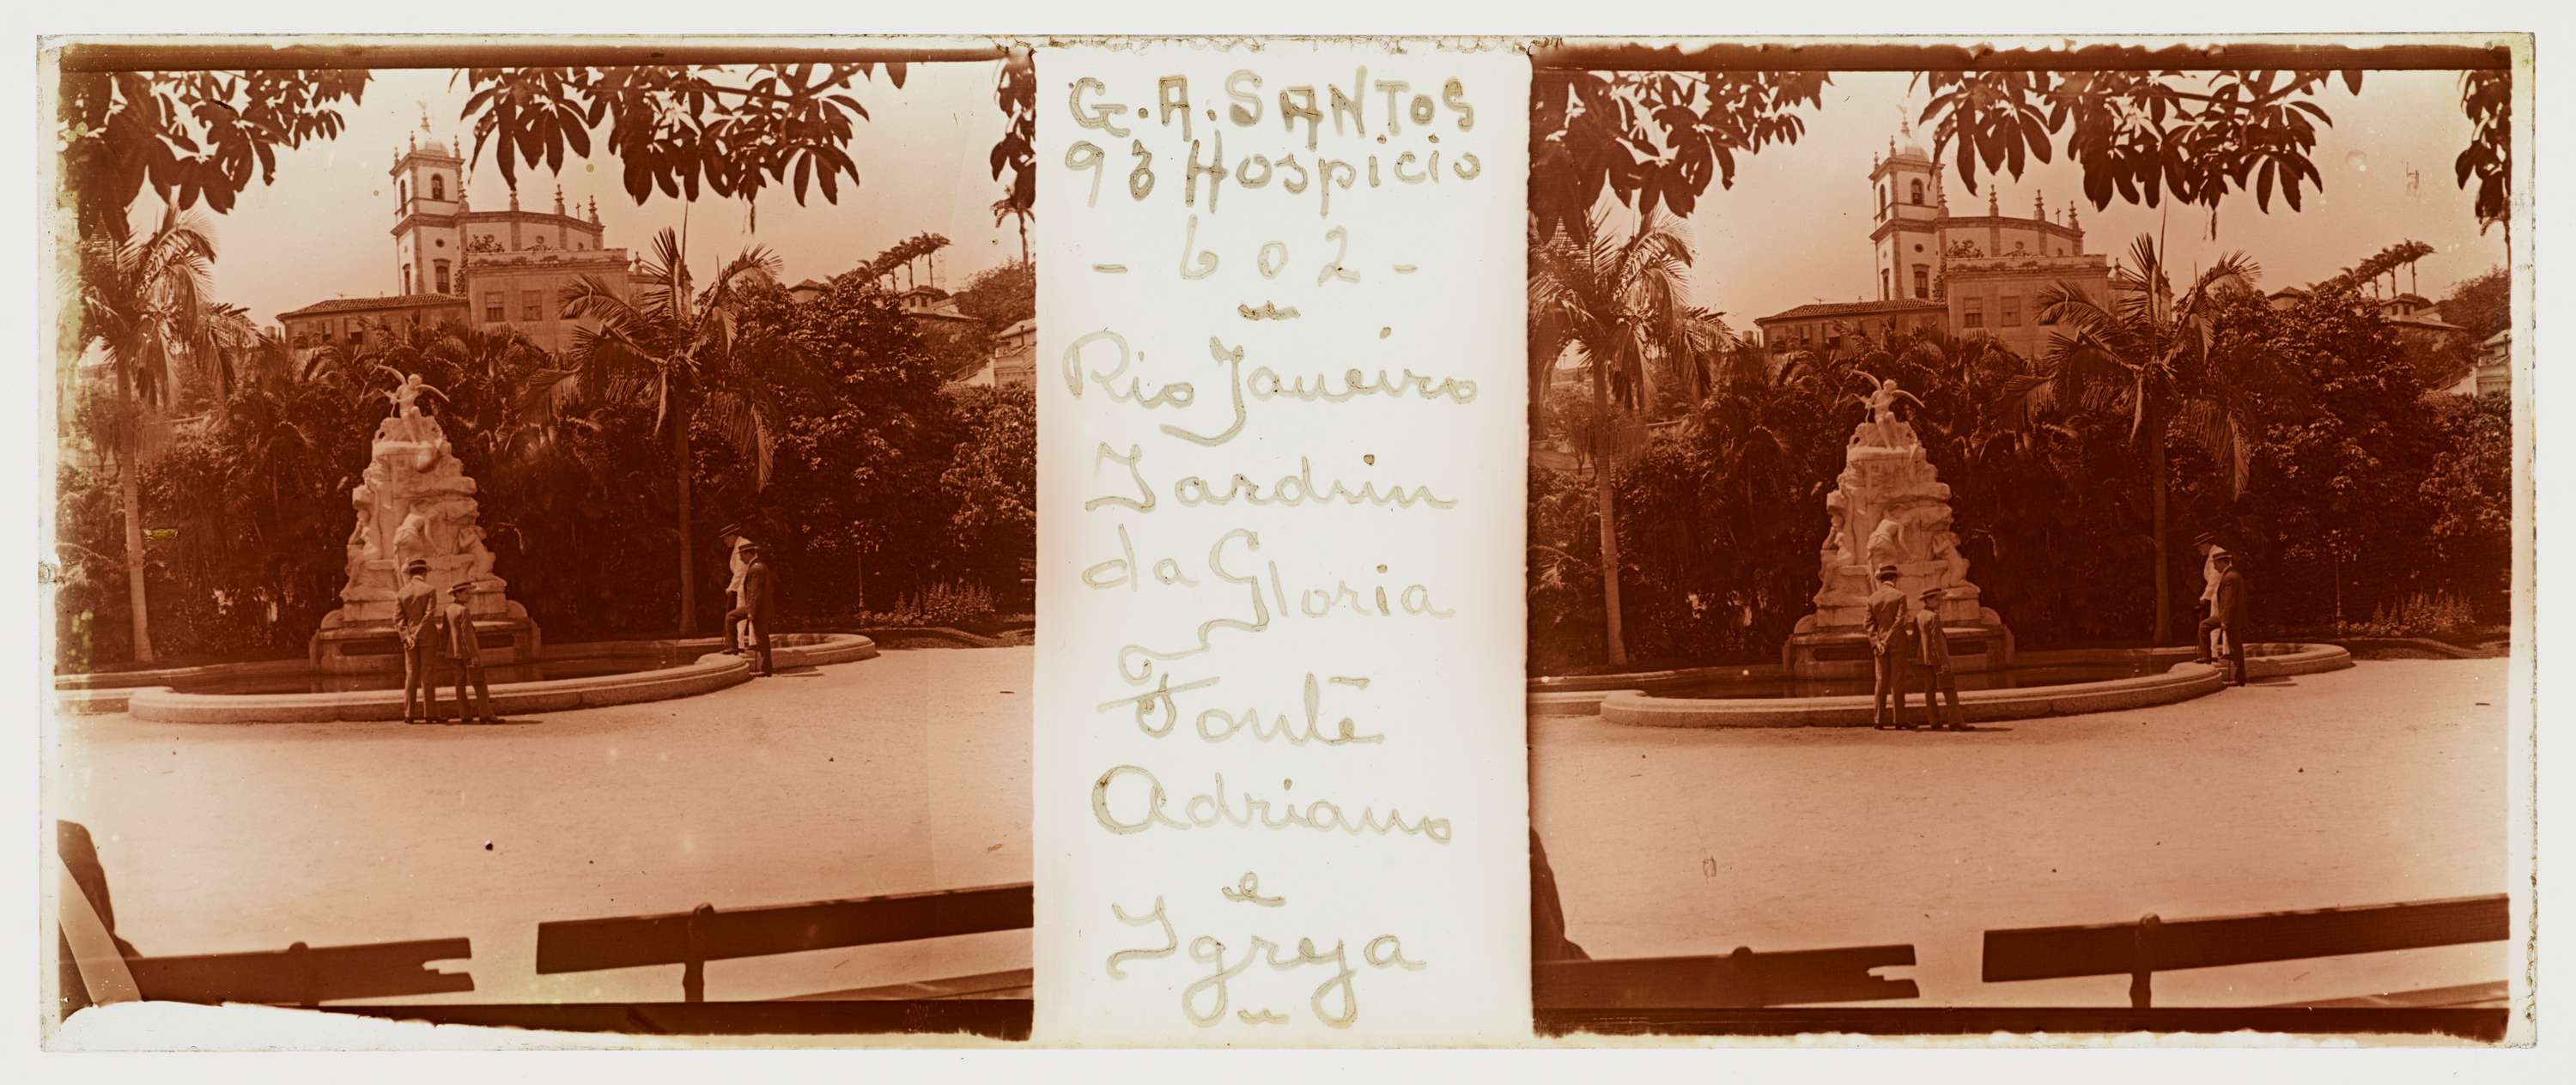 G. A. SANTOS
93 Hospicio
- 602 -
Rio Janeiro
Jardim
da Gloria
Fonte
Adriano
e
Igreja